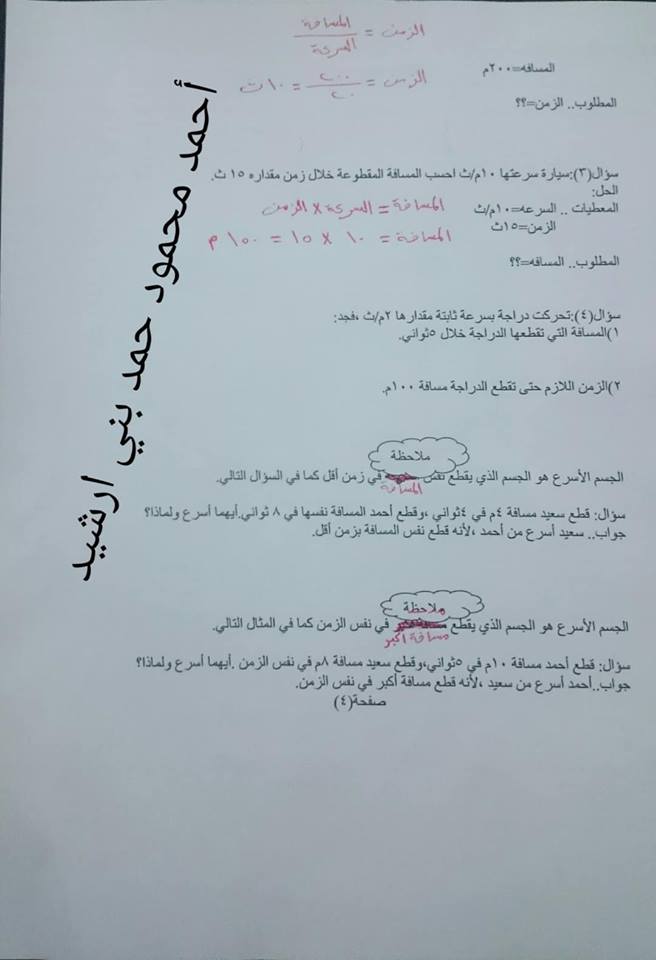 الزمن = المسافة / السرعة
المسافه=٢٠٠م
الزمن = ٢٠٠ / ٢٠ = ١٠ ث
المطلوب.. الزمن=؟؟
سؤال(٣):سيارة سرعتها ١٠م/ث احسب المسافة المقطوعة خلال زمن مقداره ١٥ ث.
الحل:
المعطيات .. السرعه=١٠م/ث
المسافة = السرعة × الزمن
الزمن=١٥ث
المسافة = ١٠ × ١٥ = ١٥٠ م
المطلوب.. المسافه=؟؟
سؤال(٤):تحركت دراجة بسرعة ثابتة مقدارها ٢م/ث ،فجد:
١)المسافة التي تقطعها الدراجة خلال ٥ثواني.
٢)الزمن اللازم حتى تقطع الدراجة مسافة ١٠٠م.
ملاحظة
الجسم الأسرع هو الجسم الذي يقطع نفس في زمن أقل كما في السؤال التالي.
المسافة
سؤال: قطع سعيد مسافة ٤م في ٤ثواني ،وقطع أحمد المسافة نفسها في ٨ ثواني.أيهما أسرع ولماذا؟
جواب.. سعيد أسرع من أحمد ،لأنه قطع نفس المسافة بزمن أقل.
ملاحظة
الجسم الأسرع هو الجسم الذي يقطع في نفس الزمن كما في المثال التالي.
مسافة أكبر
سؤال: قطع أحمد مسافة ١٠م في ٥ثواني،وقطع سعيد مسافة ٨م في نفس الزمن .أيهما أسرع ولماذا؟
جواب..أحمد أسرع من سعيد ،لأنه قطع مسافة أكبر في نفس الزمن.
صفحة(٤)
أحمد محمود حمد بني ارشيد